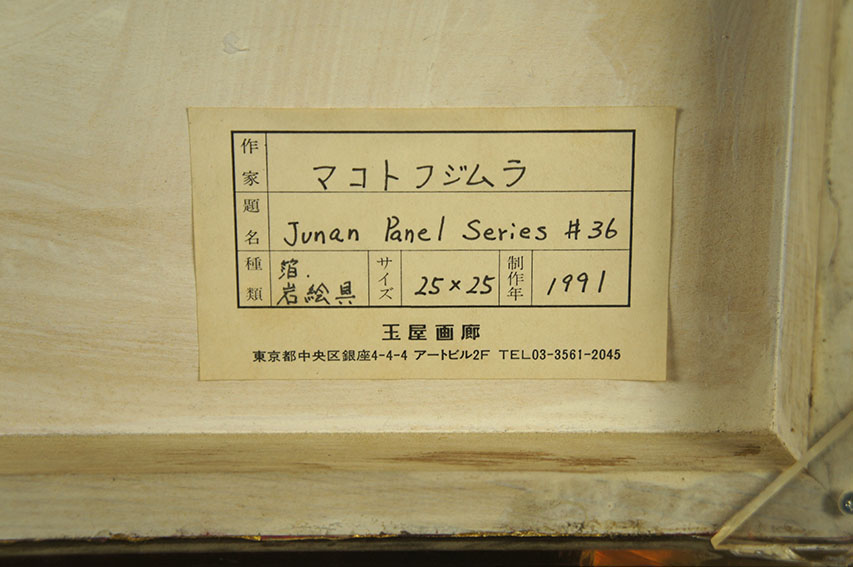 作家 マコトフジムラ
題名 Junan Panel Series #36
種類 箔. 岩絵具 サイズ 25×25 制作年 1991
玉屋画廊
東京都中央区銀座4-4-4 アートビル2F TEL03-3561-2045